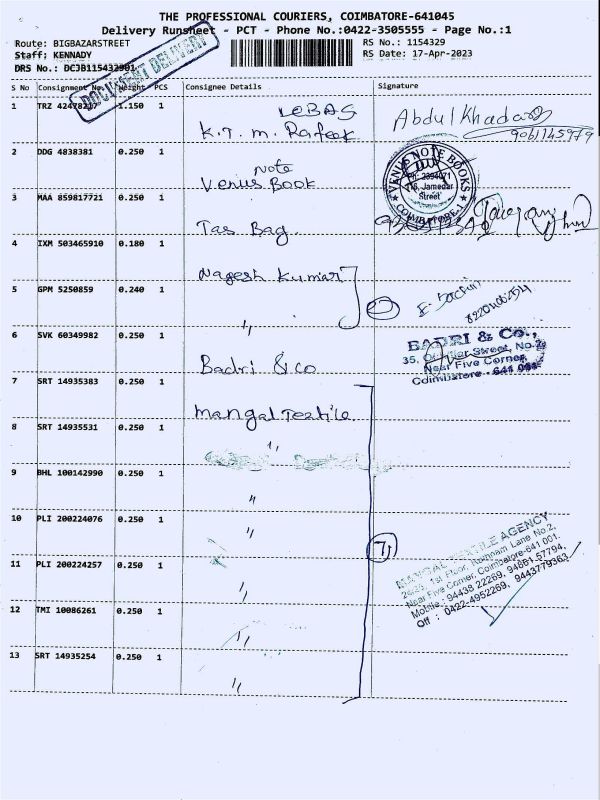 THE PROFESSIONAL COURIERS, COIMBATORE-641045
Delivery Runsheet - PCT - Phone No.:0422-3505555 - Page No.:1
Route: BIGBAZARSTREET
RS No.: 1154329
Staff: KENNADY
RS Date: 17-Apr-2023
DRS No.: DCJB115432901
DOCUMENT DELIVERY
S No Consignment No. Weight PCS Consignee Details Signature
1 TRZ 42478217 1.150 1 LEBAS
K.T.M. Rafeek
Abdul Khadar
9061145979
2 DDG 4838381 0.250 1 Note
Venus Book
VENUS NOTE BOOKS
Ph: 2394071
Jamedar
Street
COIMBATORE-1
3 MAA 859817721 0.250 1 Tas Bag
4 IXM 503465910 0.180 1 Nagesh Kumar
5 GPM 5250859 0.240 1 "
6 SVK 60349982 0.250 1 Badri & Co
BADRI & Co.,
Street, No.2,
Near Five Corner,
Coimbatore - 641 001.
7 SRT 14935383 0.250 1 Mangal Textile
8 SRT 14935531 0.250 1 "
9 BHL 100142990 0.250 1 "
10 PLI 200224076 0.250 1 "
11 PLI 200224257 0.250 1 "
12 TMI 10086261 0.250 1 "
13 SRT 14935254 0.250 1 "
MANGAL TEXTILE AGENCY
1st Floor, Rathnam Lane No.2,
Near Five Corner, Coimbatore-641 001.
Mobile: 94438 22269, 94861 57794,
Off : 0422-4952269, 9443779363